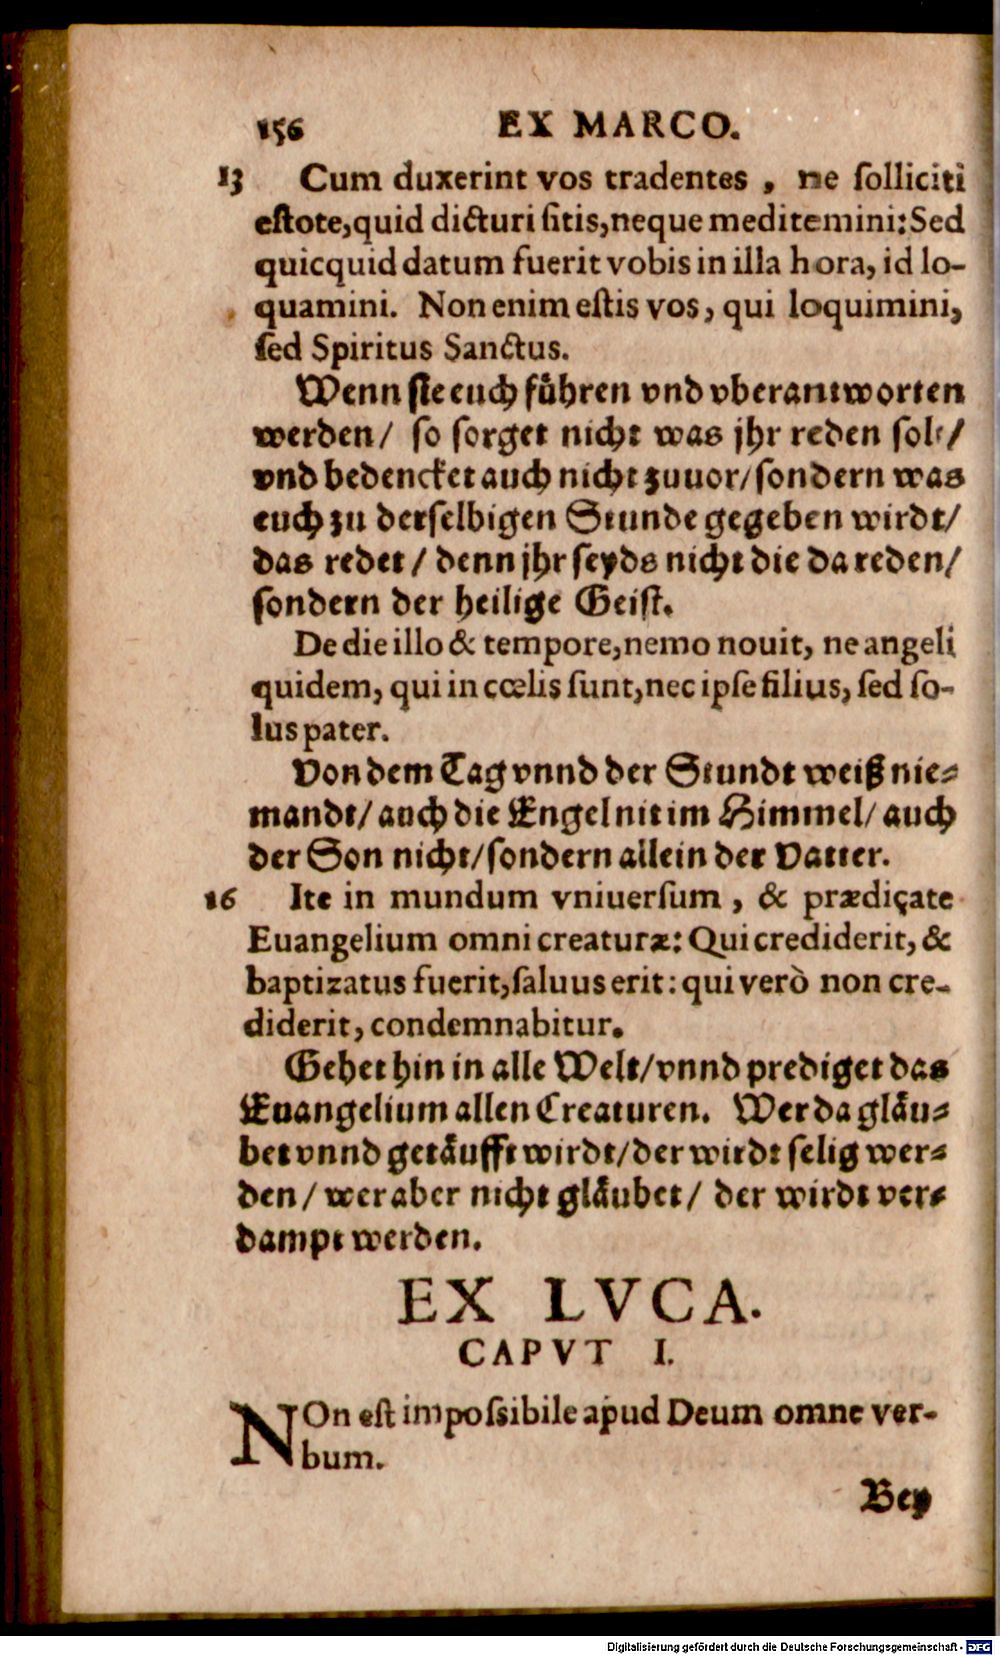 156 EX MARCO.
13 Cum duxerint vos tradentes, ne solliciti
estote, quid dicturi sitis, neque meditemini: Sed
quicquid datum fuerit vobis in illa hora, id lo-
quamini. Non enim estis vos, qui loquimini,
sed Spiritus Sanctus.
Wenn sie euch führen vnd vberantworten
werden/ so sorget nicht was jhr reden solt/
vnd bedencket auch nicht zuuor/ sondern was
euch zu derselbigen Stunde gegeben wirdt/
das redet/ denn jhr seyds nicht die da reden/
sondern der heilige Geist.
De die illo & tempore, nemo novit, ne angeli
quidem, qui in cœlis sunt, nec ipse filius, sed so-
lus pater.
Von dem Tag vnnd der Stundt weiß nie-
mandt/ auch die Engel nit im Himmel/ auch
der Son nicht/ sondern allein der Vatter.
16 Ite in mundum vniuersum, & prædiçate
Euangelium omni creaturæ: Qui crediderit, &
baptizatus fuerit, saluus erit: qui verò non cre-
diderit, condemnabitur.
Gehet hin in alle Welt/ vnnd prediget das
Euangelium allen Creaturen. Wer da gläu-
bet vnnd getäufft wirdt/ der wirdt selig wer-
den/ wer aber nicht gläubet/ der wirdt ver-
dampt werden.
EX LVCA.
CAPVT I.
NOn est impossibile apud Deum omne ver-
bum.
Bey
Digitalisierung gefördert durch die Deutsche Forschungsgemeinschaft - DFG